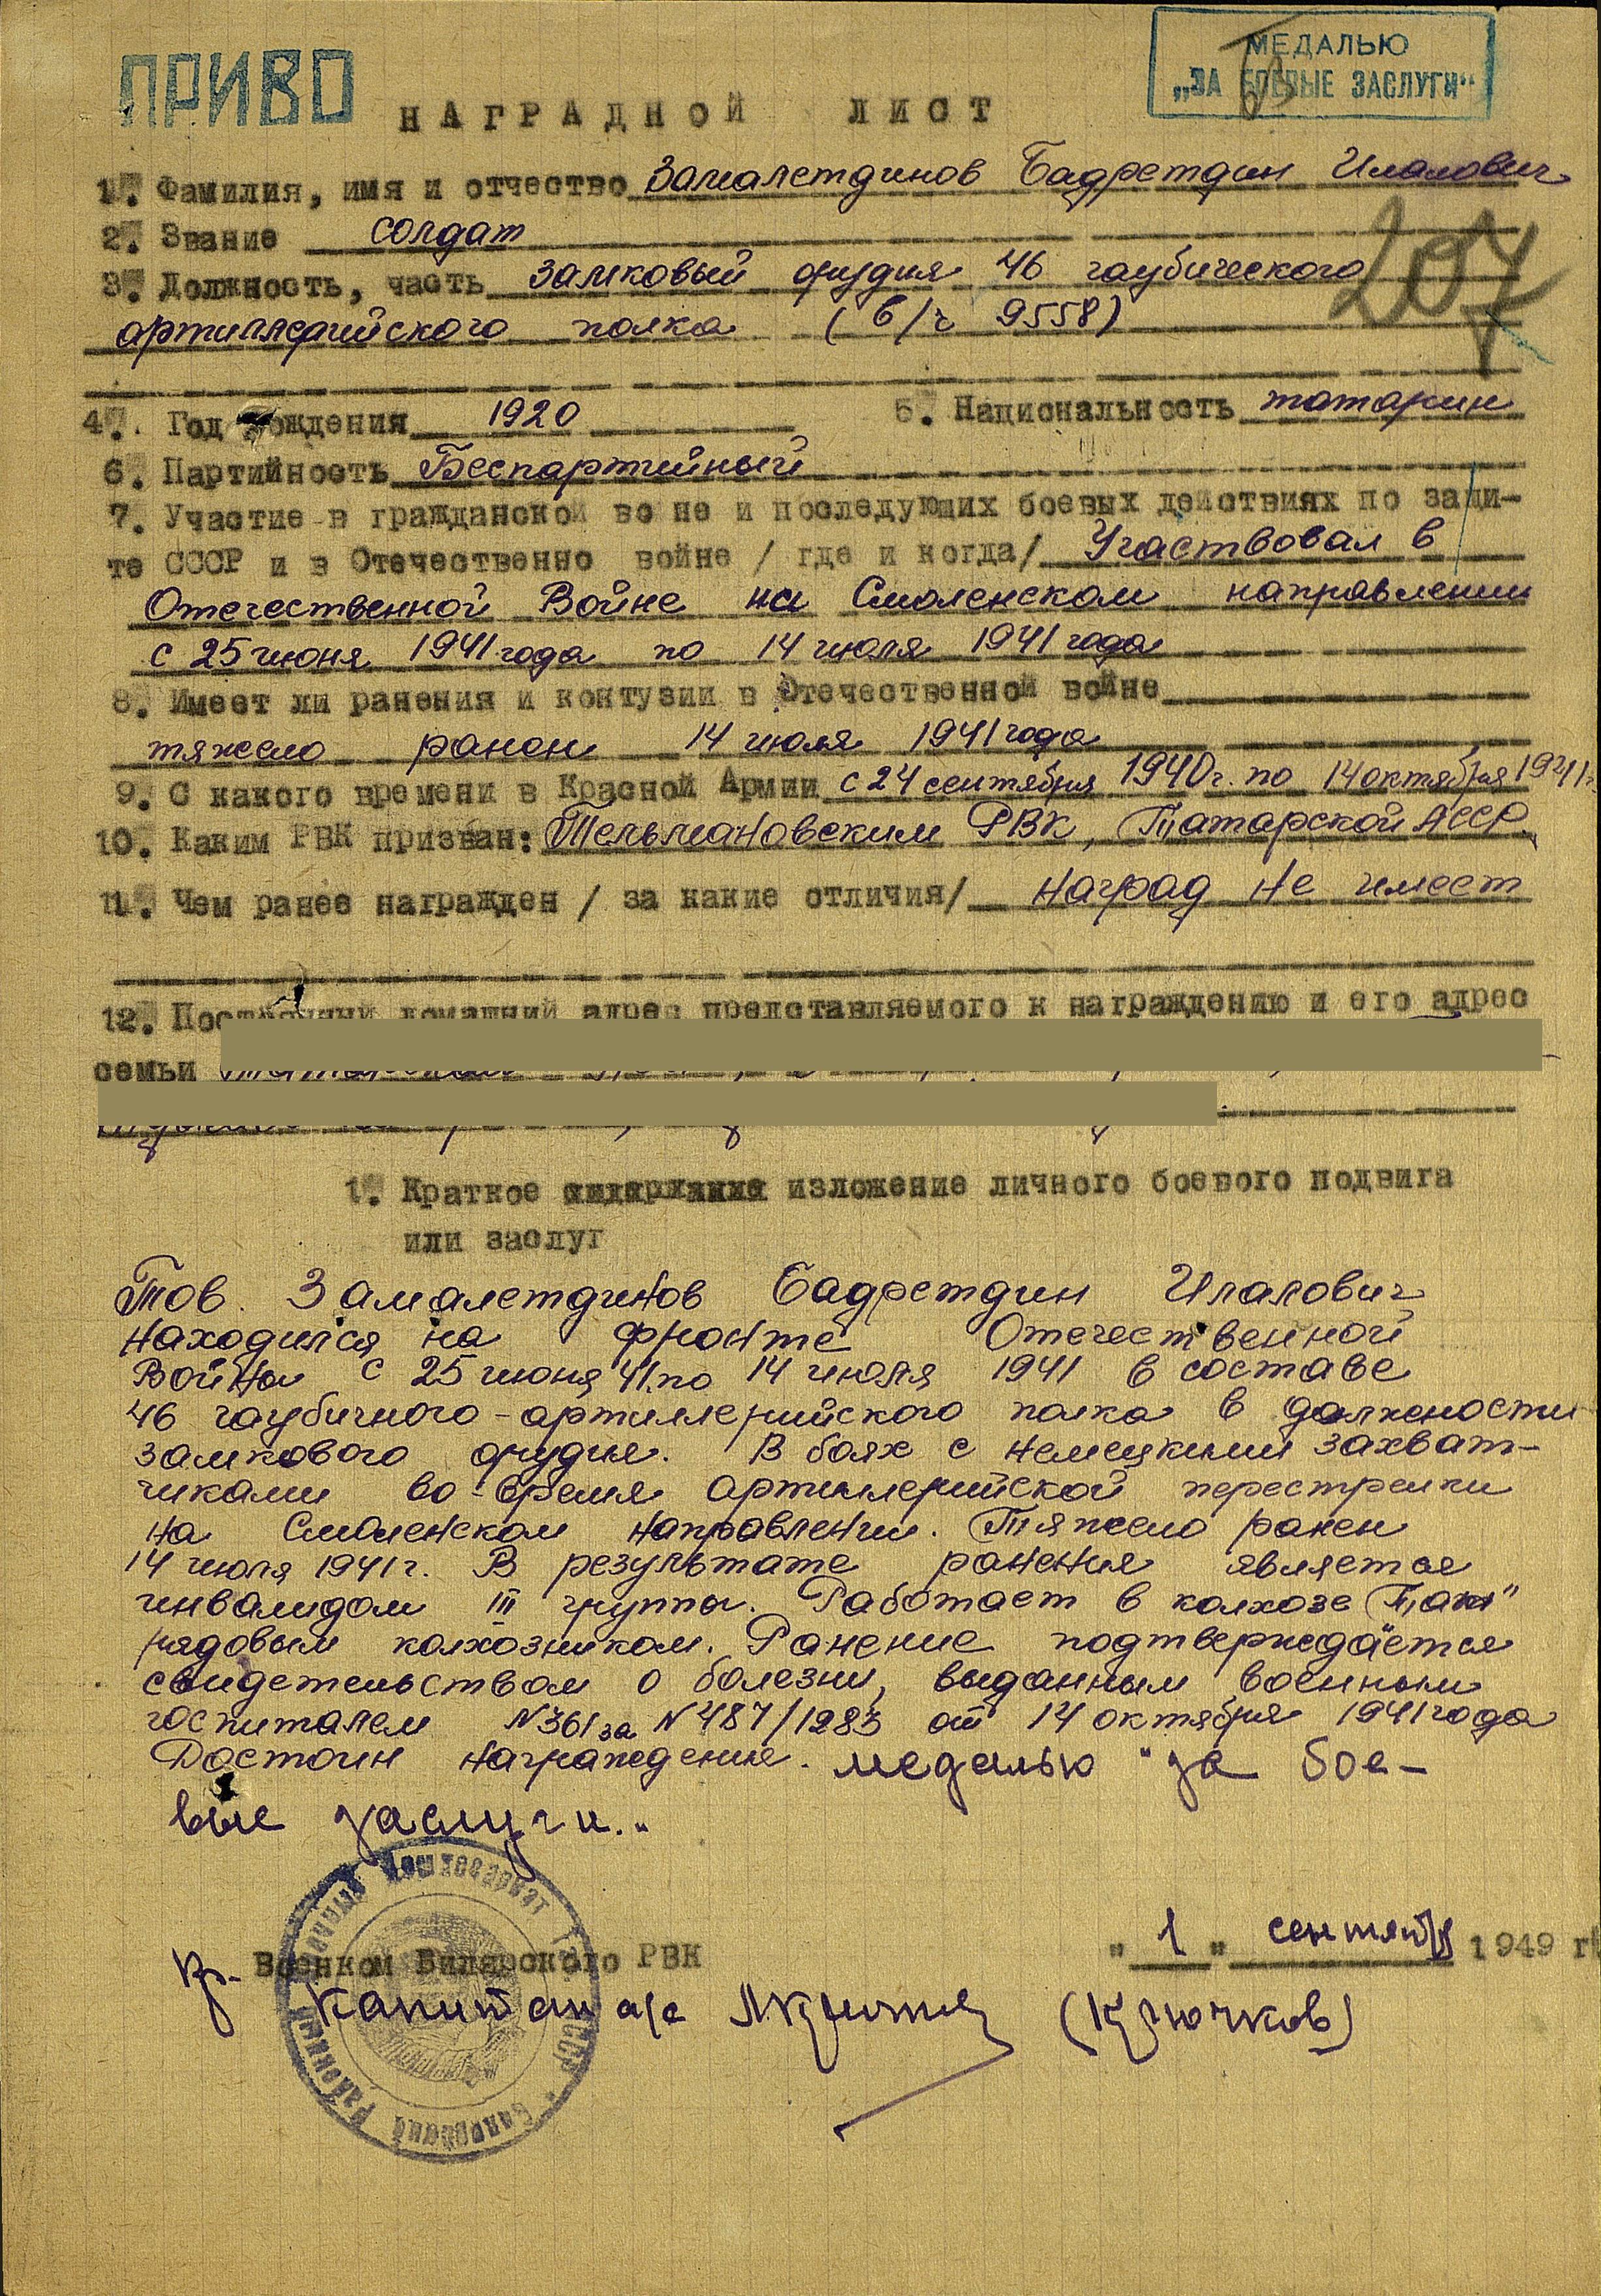 ПРИВО
МЕДАЛЬЮ
„ЗА БОЕВЫЕ ЗАСЛУГИ“
НАГРАДНОЙ ЛИСТ
1. Фамилия, имя и отчество Замалетдинов Бадретдин Илалович
2. Звание солдат
207
3. Должность, часть замковый орудия 46 гаубического
артиллерийского полка (в/ч 9558)
4. Год рождения 1920 5. Национальность татарин
6. Партийность Беспартийный
7. Участие в гражданской войне и последующих боевых действиях по защи-
те СССР и в Отечественно войне / где и когда/ Участвовал в
Отечественной Войне на Смоленском направлении
с 25 июня 1941 года по 14 июля 1941 года
8. Имеет ли ранения и контузии в Отечественной войне
тяжело ранен 14 июля 1941 года
9. С какого времени в Красной Армии с 24 сентября 1940г. по 14 октября 1941г.
10. Каким РВК призван: Тельмановским РВК, Татарской АССР.
11. Чем ранее награжден / за какие отличия/ Наград не имеет
12. Постоянный домашний адрес представляемого к награждению и его адрес
семьи
1. Краткое изложение личного боевого подвига
или заслуг
Тов. Замалетдинов Бадретдин Илалович
находился на фронте Отечественной
Войны с 25 июня 41. по 14 июля 1941 в составе
46 гаубичного-артиллерийского полка в должности
замкового орудия. В боях с немецкими захват-
чиками во-время артиллерийской перестрелки
на Смоленском направлении. Тяжело ранен
14 июля 1941г. В результате ранения является
инвалидом III группы. Работает в колхозе
рядовым колхозником. Ранение подтверждается
свидетельством о болезни, выданным военным
госпиталем N361 за N487/1283 от 14 октября 1941 года
Достоин награждения. медалью "за бое-
вые заслуги."
Вр. Военком Билярского РВК "1" сентября 1949 г
Капитан а/с (Крючков)